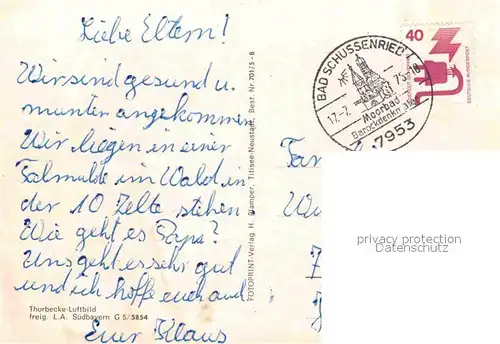 Liebe Eltern!
Wir sind gesund u.
munter angekommen
Wir liegen in einer
Talmulde im Wald in
der 10 Zelte stehen
Wie geht es Papa?
Uns geht es sehr gut
und ich hoffe euch auch
Euer Klaus
Thorbecke-Luftbild
freig. L.A. Südbayern G 5/5854
FOTOPRINT-Verlag H. Blamper, Titisee-Neustadt, Best. Nr. 701/5-8
BAD SCHUSSENRIED
17.-7. 75-18
Moorbad
Barockdenkmale
7953
40
DEUTSCHE BUNDESPOST
Fam
privacy protection
Datenschutz